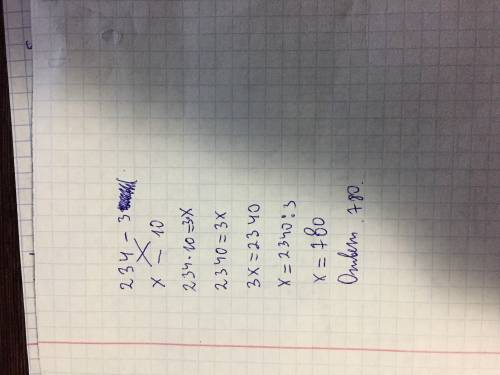 234 – 3
x – 10
234·10=3x
2340=3x
3x=2340
x=2340:3
x=780
Ответ. 780.